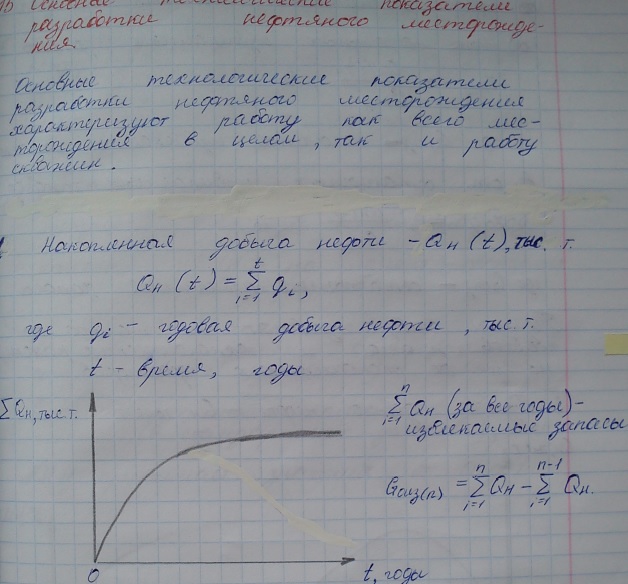 Основные технологические показатели
разработки нефтяного месторожде-
ния.
Основные технологические показатели
разработки нефтяного месторождения
характеризуют работу как всего мес-
торождения в целом, так и работу
скважин.
Накопленная добыча нефти - Qн (t), тыс. т.
Qн (t) = ∑ᵗᵢ₌₁ qᵢ,
где qi - годовая добыча нефти, тыс. т.
t - время, годы
∑Qн, тыс. т.
∑ⁿᵢ₌₁ Qн (за все годы) -
извлекаемые запасы
= ∑ⁿᵢ₌₁ Qн - ∑ⁿ⁻¹ᵢ₌₁ Qн.
0
t, годы